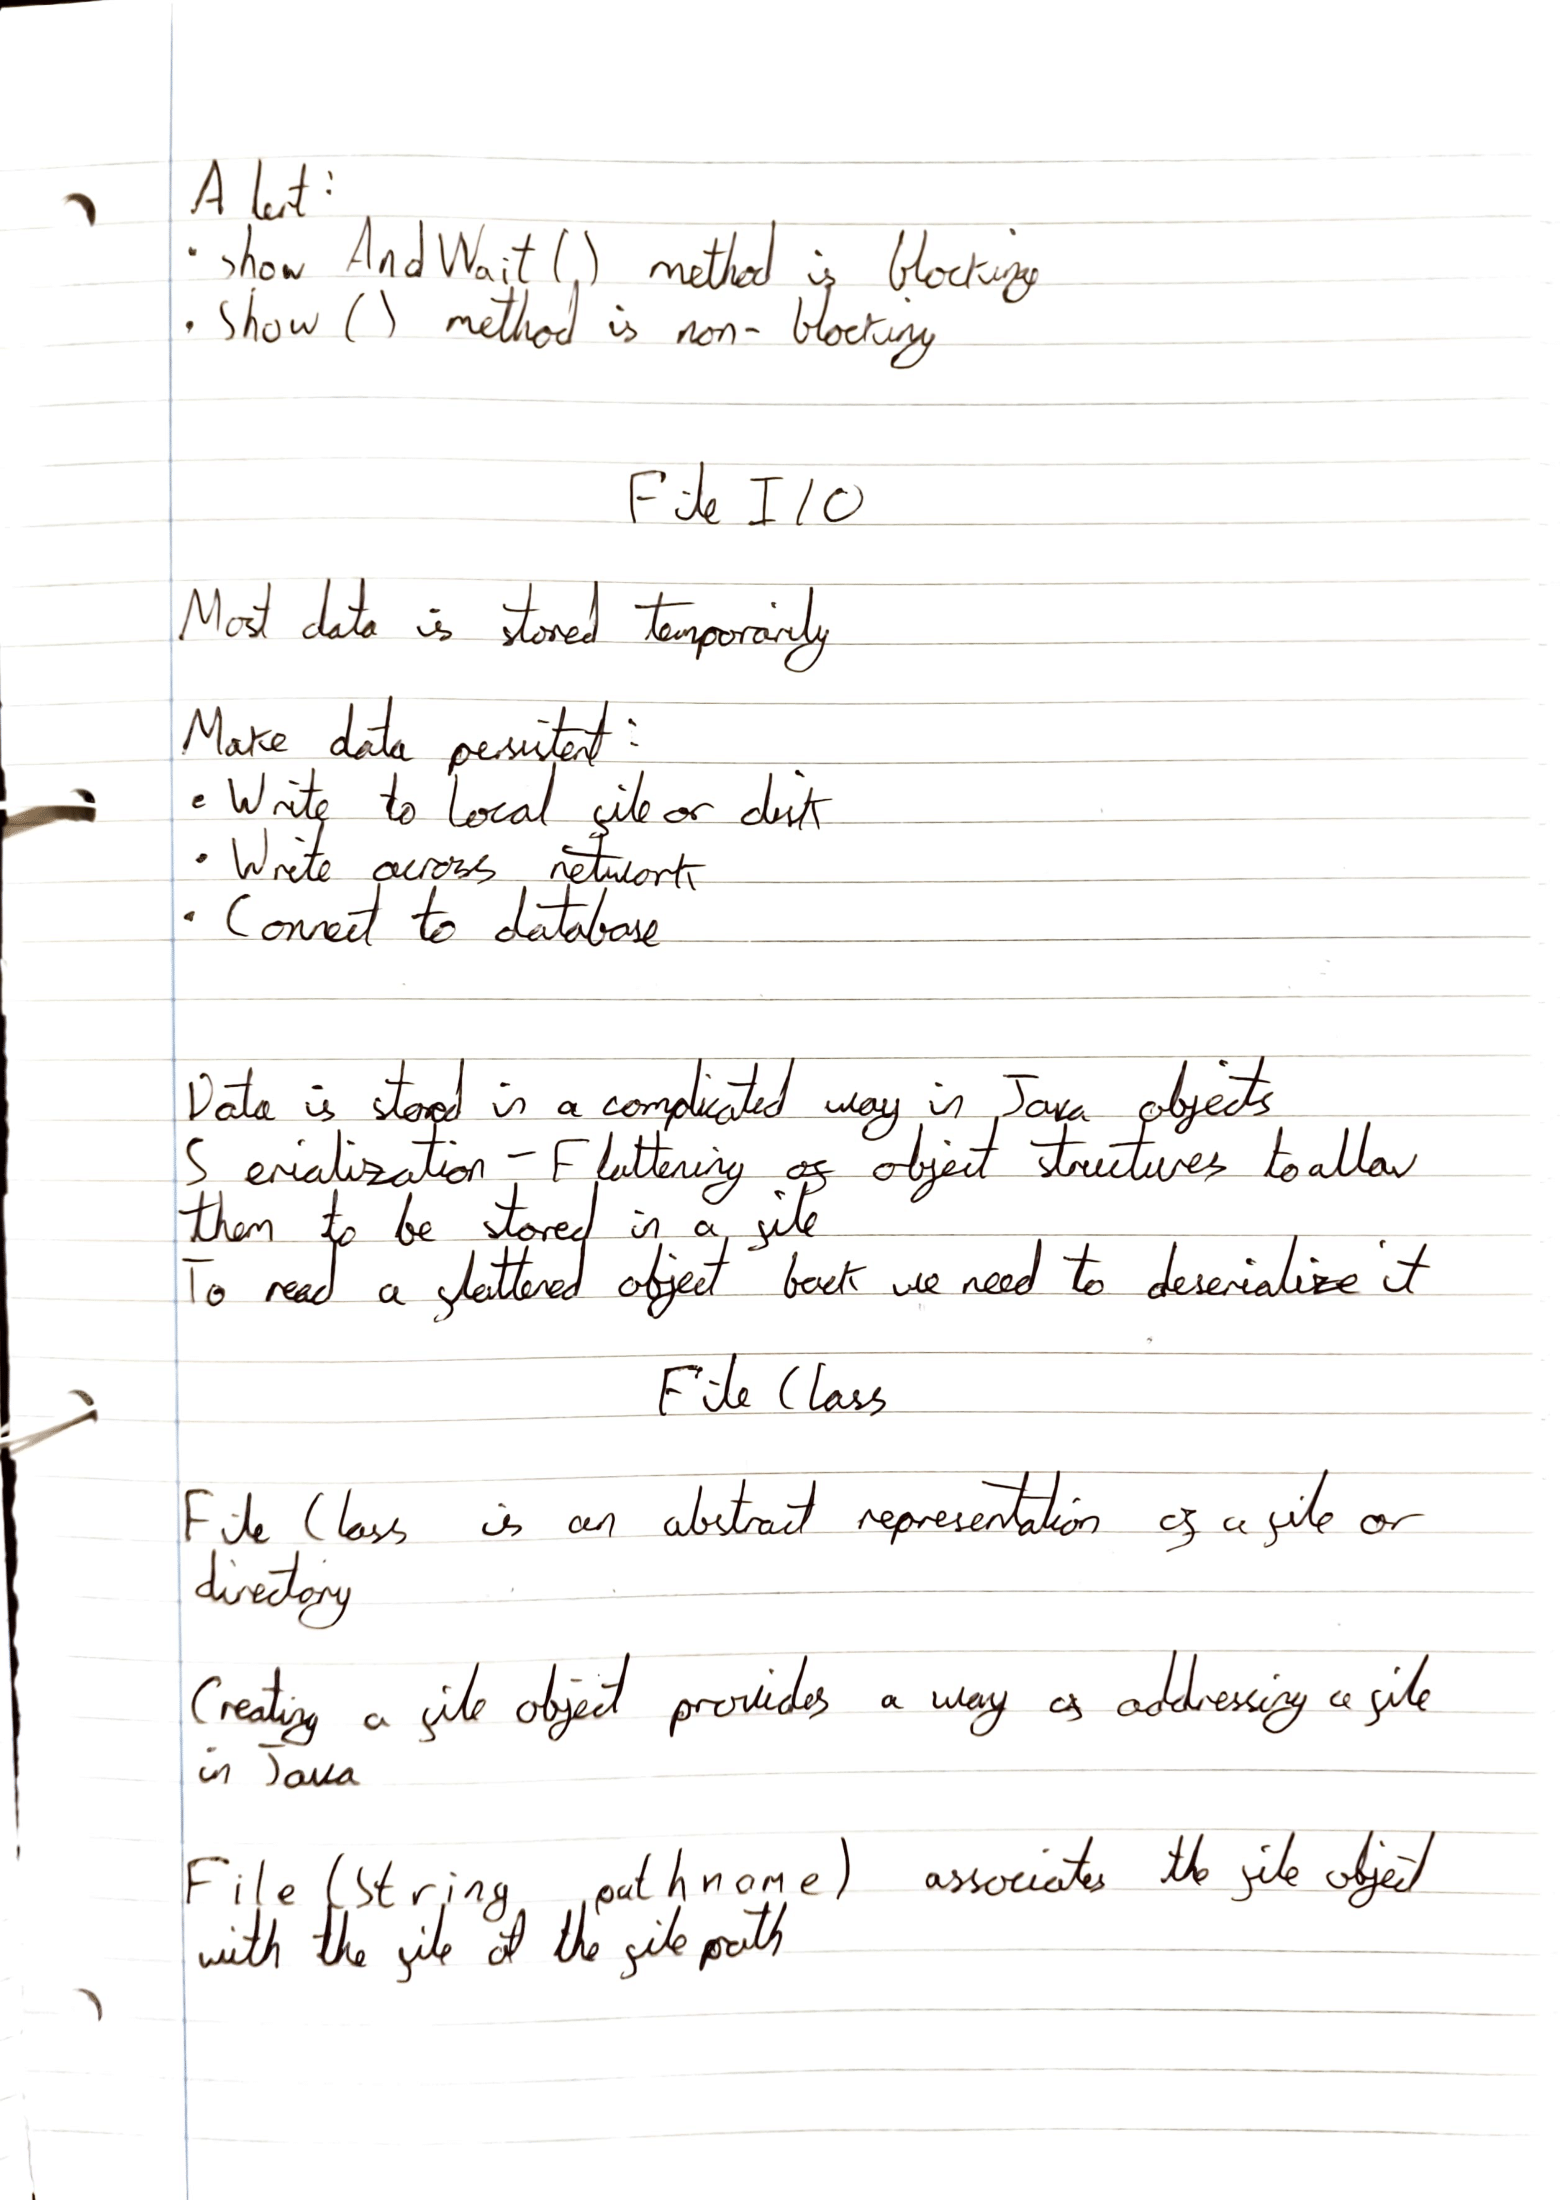 Alert:
• show AndWait() method is blocking
• Show () method is non-blocking
File I/O
Most data is stored temporarily
Make data persistent:
• Write to local file or disk
• Write across network
• Connect to database
Data is stored in a complicated way in Java objects
Serialization - Flattening of object structures to allow
them to be stored in a file
To read a flattened object back we need to deserialize it
File Class
File Class is an abstract representation of a file or
directory
Creating a file object provides a way of addressing a file
in Java
File (String pathname) associates the file object
with the file at the file path